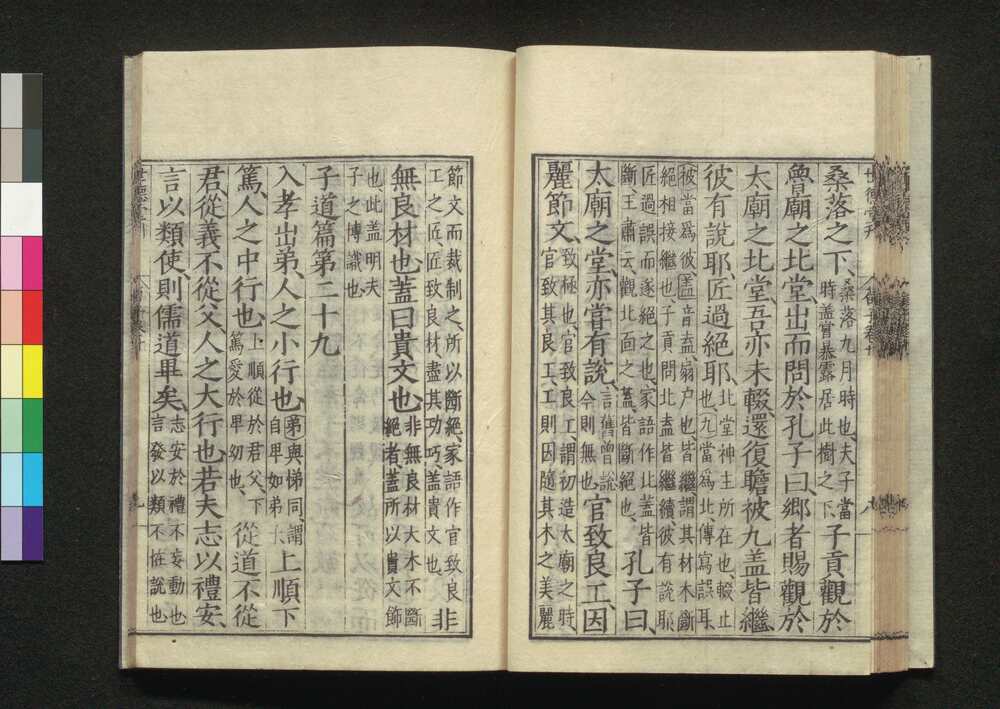 桑落之下、桑落九月時也夫子當時蓋嘗暴露居此樹之下子貢觀於
魯廟之北堂出而問於孔子曰、鄉者賜觀於
太廟之北堂、吾亦未輟、還復瞻被九盖皆繼、
彼有說耶、匠過絕耶、北堂神主所在也、輟止也、九當爲北傳寫誤耳、
被當爲彼、盖音盍、扇户也、皆繼謂其材木斷絕相接繼也、子貢問北盍皆繼續、彼有說耶、
匠過誤而遂絕之也、家語作北盖皆斷、王肅云、觀北面之盖、皆斷絕也、孔子曰、
太廟之堂、亦嘗有說、言舊曾說今則無也、官致良工、因
麗節文、致極也、官致良工、謂初造太廟之時、官致其良工、工則因隨其木之美麗
節文而裁制之、所以斷絕、家語作官致良工之匠、匠致良材、盡其功巧、盖貴文也、非
無良材也、蓋曰貴文也、非無良材大木不斷絕者、盖所以貴文節
也、此盖明夫子之博識也、
子道篇第二十九
入孝出弟、人之小行也、弟與悌同、謂自卑如弟也上順下
篤、人之中行也、上順從於君父、下篤愛於卑幼也、從道不從
君、從義、不從父、人之大行也、若夫志以禮安、
言以類使、則儒道畢矣、志安於禮不妄動也言發以類不怪說也